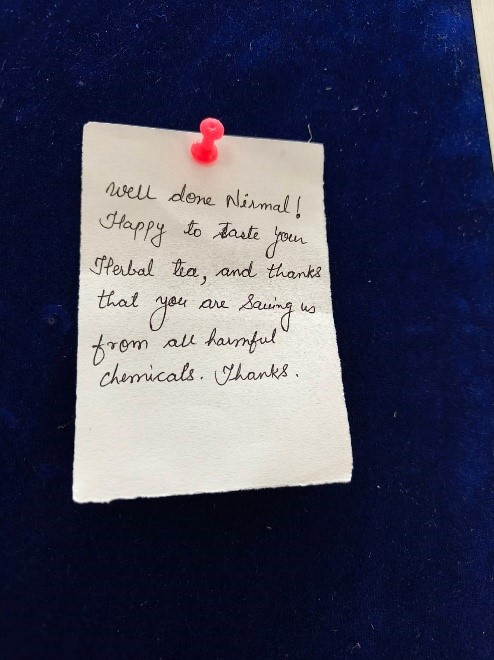 Well done Nirmal!
Happy to taste your
Herbal tea, and thanks
that you are saving us
from all harmful
chemicals. Thanks.